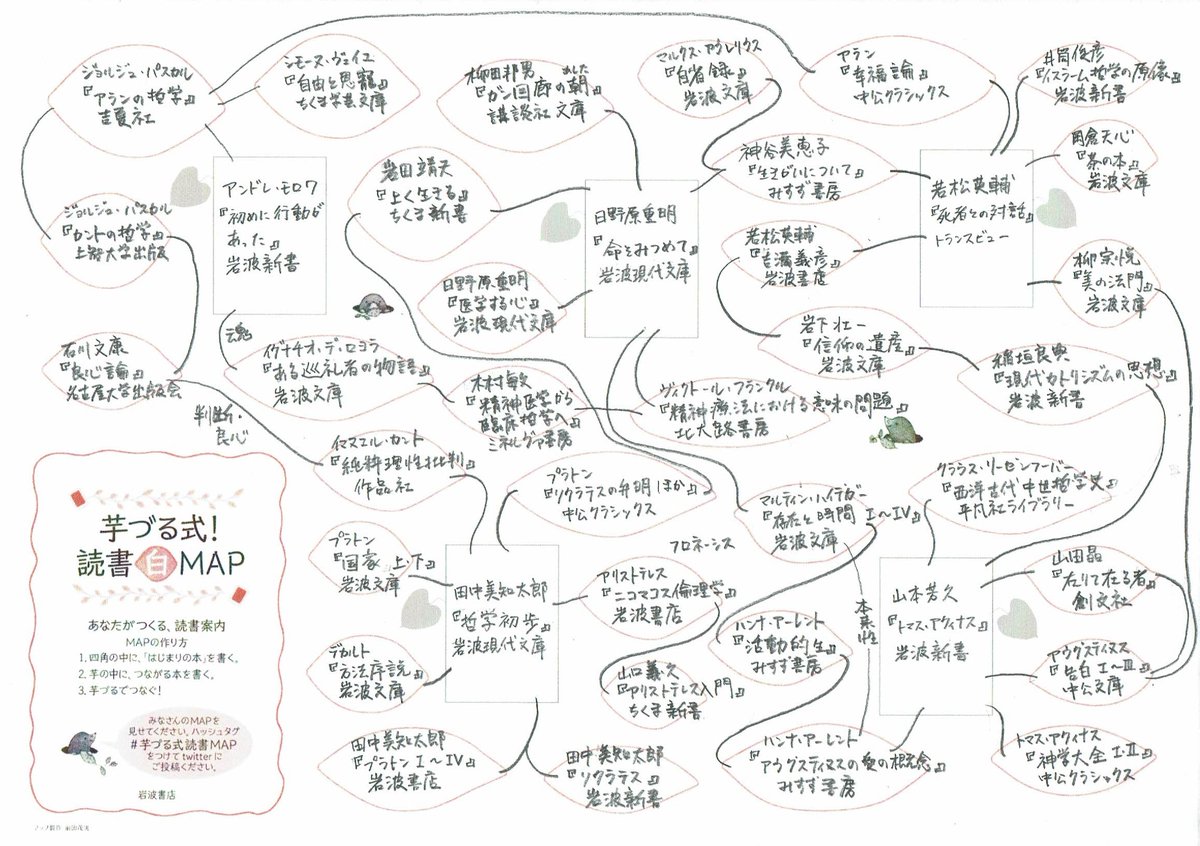 ジョルジュ・パスカル
『アランの哲学』
吉夏社
シモーヌ・ヴェイユ
『自由と恩寵』
ちくま学芸文庫
柳田邦男
『ガン回廊の朝』
あした
講談社文庫
マルクス・アウレリウス
『自省録』
岩波文庫
アラン
『幸福論』
中公クラシックス
井筒俊彦
『イスラーム哲学の原像』
岩波新書
ジョルジュ・パスカル
『カントの哲学』
上智大学出版
アンドレ・モロワ
『初めに行動が
あった』
岩波新書
岩田靖夫
『よく生きる』
ちくま新書
日野原重明
『命をみつめて』
岩波現代文庫
神谷美恵子
『生きがいについて』
みすず書房
若松英輔
『死者との対話』
トランスビュー
岡倉天心
『茶の本』
岩波文庫
日野原重明
『医学する心』
岩波現代文庫
若松英輔
『吉満義彦』
岩波書店
柳宗悦
『美の法門』
岩波文庫
石川文康
『良心論』
名古屋大学出版会
魂
イグナチオ・デ・ロヨラ
『ある巡礼者の物語』
岩波文庫
木村敏
『精神医学から
臨床哲学へ』
ミネルヴァ書房
ヴィクトール・フランクル
『精神療法における意味の問題』
北大路書房
岩下壮一
『信仰の遺産』
岩波文庫
稲垣良典
『現代カトリシズムの思想』
岩波新書
判断・
良心
イマヌエル・カント
『純粋理性批判』
作品社
プラトン
『ソクラテスの弁明ほか』
中公クラシックス
マルティン・ハイデガー
『存在と時間』Ⅰ〜Ⅳ
岩波文庫
クラウス・リーゼンフーバー
『西洋古代中世哲学史』
平凡社ライブラリー
プラトン
『国家』上・下
岩波文庫
田中美知太郎
『哲学初歩』
岩波現代文庫
フロネーシス
アリストテレス
『ニコマコス倫理学』
岩波書店
本来性
山本芳久
『トマス・アクィナス』
岩波新書
山田晶
『在りて在る者』
創文社
デカルト
『方法序説』
岩波文庫
山口義久
『アリストテレス入門』
ちくま新書
ハンナ・アーレント
『活動的生』
みすず書房
アウグスティヌス
『告白Ⅰ〜Ⅲ』
中公文庫
田中美知太郎
『プラトンⅠ〜Ⅳ』
岩波書店
田中美知太郎
『ソクラテス』
岩波新書
ハンナ・アーレント
『アウグスティヌスの愛の概念』
みすず書房
トマス・アクィナス
『神学大全Ⅰ・Ⅱ』
中公クラシックス
芋づる式!
読書白MAP
あなたがつくる、読書案内
MAPの作り方
1. 四角の中に、「はじまりの本」を書く。
2. 芋の中に、つながる本を書く。
3. 芋づるでつなぐ!
みなさんのMAPを
見せてください。ハッシュタグ
#芋づる式読書MAP
をつけてtwitterに
ご投稿ください。
岩波書店